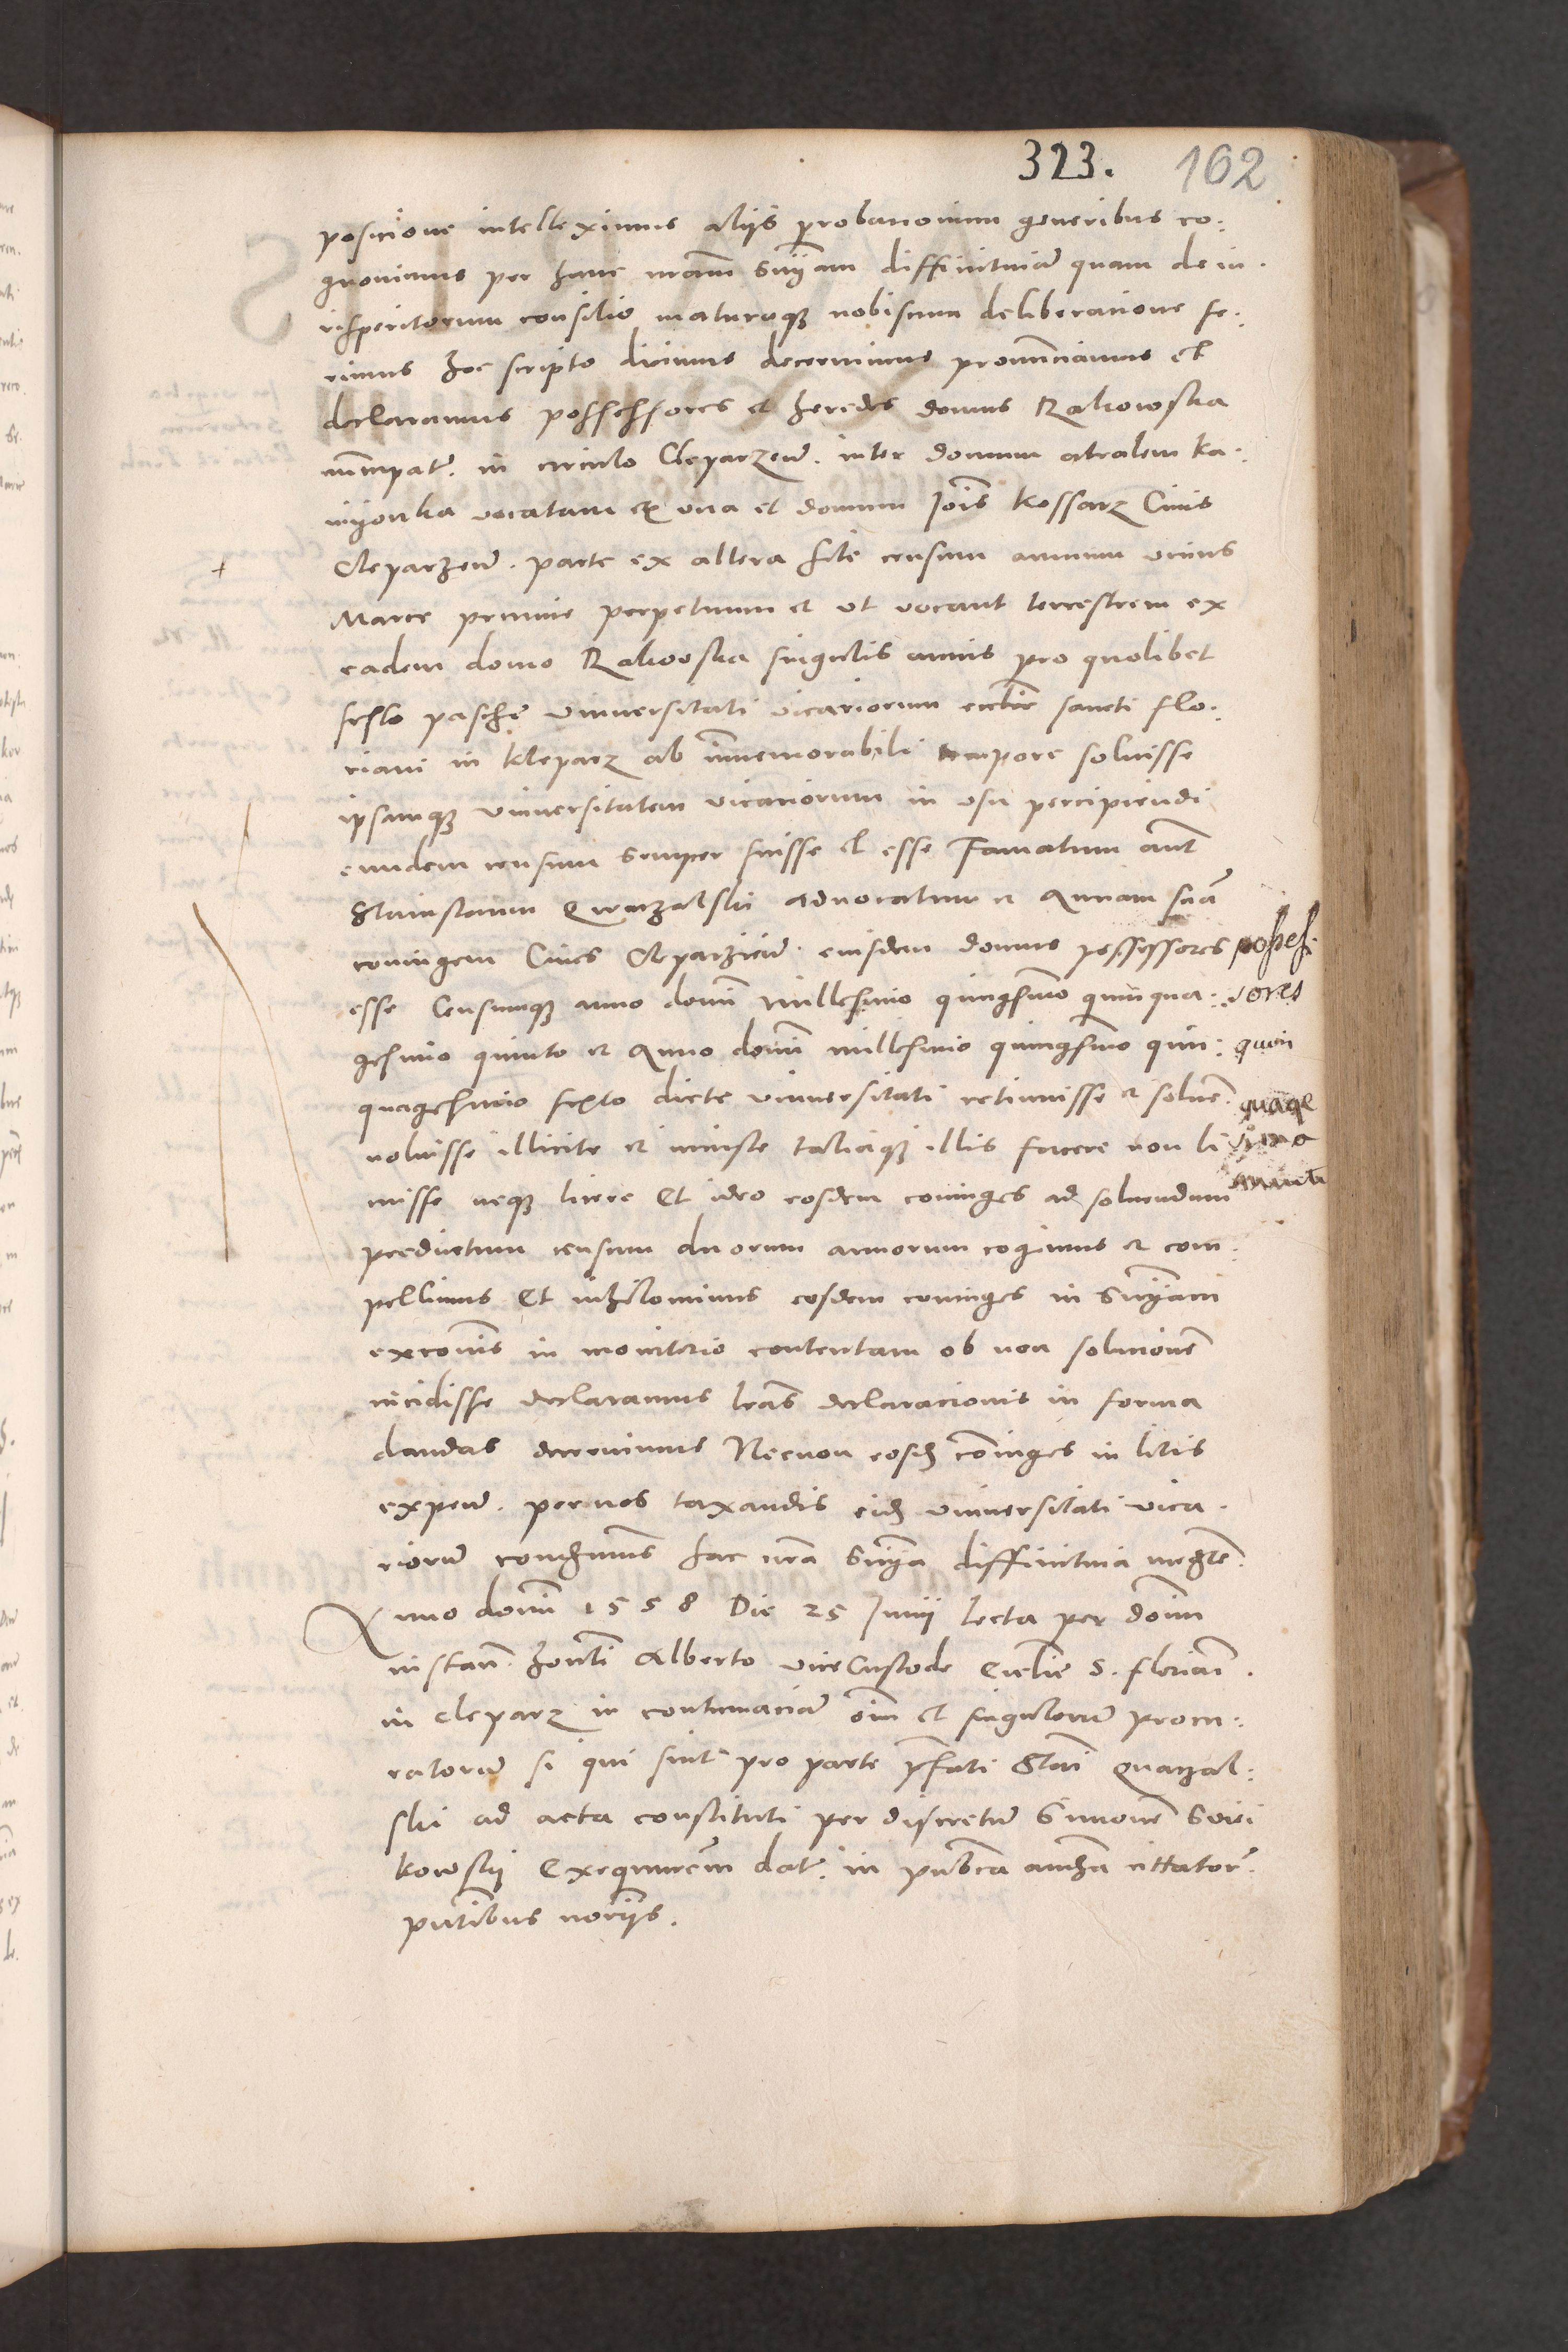 323. 162
posicione intelleximus aliis probacionum generibus co:
gnovimus per hanc nram Snÿam diffinitivã quam de iu:
risperitorum consilio maturaqꝫ nobiscum deliberacione fe:
rimus hoc scripto dicimus decernimus pronunciamus et
declaramus possessores et heredes domus Rakowska
nuncupatę. in circulo Cleparzen̄. inter domum
vocatam ex una et domum Jois Kossarz Civis
Cleparzen̄. parte ex altera site censum annuum unius
Marce pecunie perpetuum et ut vocant terrestrem ex
eadem domo Rakowska singulis annis pro quolibet
festo pasche universitati vicariorum ecclie sancti Flo:
riani in Kleparz ab immemorabili tempore solvisse
ipsamqꝫ universitatem vicariorum in usu percipiendi
eundem censum semper fuisse et esse Famatum aut̄
Stanislaum advocatum et Annam suã
coniugem Cives Cleparzien̄. eiusdem domus possessores possess:
esse Censumqꝫ anno domini millesimo quingesimo quinqua: sores
gesimo quinto et Anno domini millesimo quingesimo quin: quin
quagesimo sexto dicte universitati retinuisse et solvere. quage
noluisse illicite et iniuste taliaqꝫ illis facere non li simo
cuisse neqꝫ licere Et ideo eosdem coniuges ad solvendum
predictum censum duorum annorum cogimus et com:
pellimus Et nihilominus eosdem coniuges in Snÿam
excois in monitorio contentam ob non solucionem
incidisse declaramus lras declaracionis in forma
dandas decernimus Necnon eosdꝫ coniuges in litis
expen̄. per nos taxandis eidꝫ universitati vica:
riorũ condemnamus hac nra Snÿa diffinitiva mediante.
Anno domini 1558 Die 25 Junii lecta per domi
instan̄. honli Alberto vice Custode Ecclie S. Floriani.
in Cleparz in contumaciã oim et singulorũ procu:
ratorũ si qui sint pro parte pfati Stai Quaczal:
ski ad acta constituti per discretũ Simonem Swi
kowski Exequutorem dat̄. in publica audien̄
pntibus noriis.